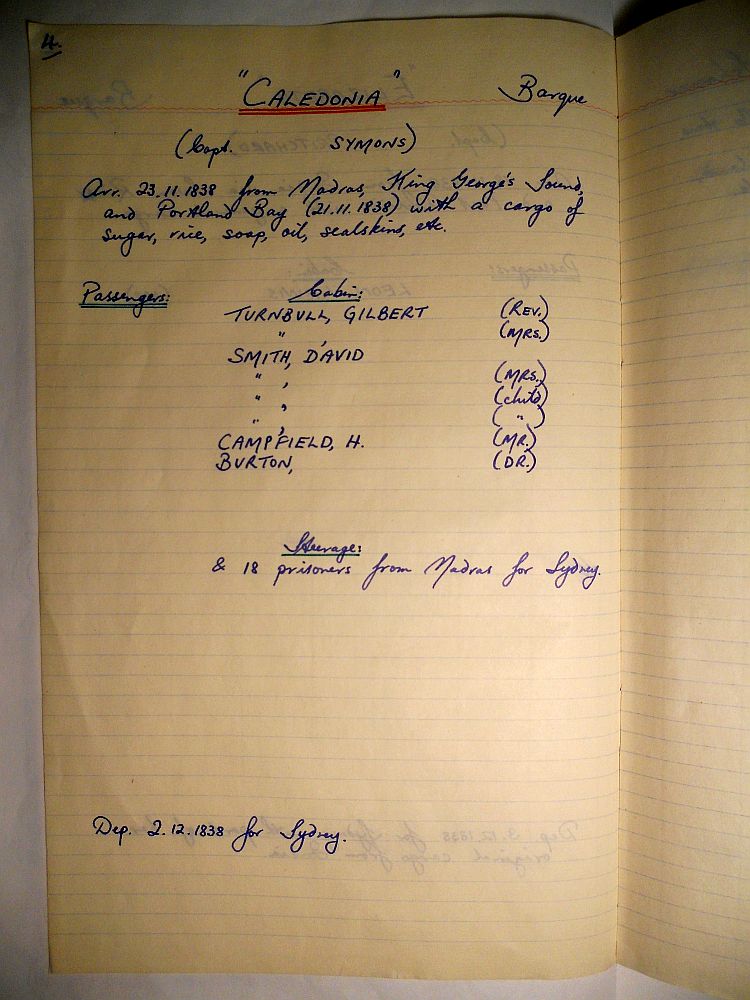 4.
"CALEDONIA" Barque
(Capt. SYMONS)
Arr. 23.11.1838 from Madras, King George's Sound,
and Portland Bay (21.11.1838) with a cargo of
sugar, rice, soap, oil, sealskins, etc.
Passengers: Cabin:
TURNBULL, GILBERT (REV.)
" , (MRS.)
SMITH, DAVID
" , (MRS.)
" , (child)
" , ( " )
CAMPFIELD, H. (MR.)
BURTON, (DR.)
Steerage:
& 18 prisoners from Madras for Sydney.
Dep. 2.12.1838 for Sydney.